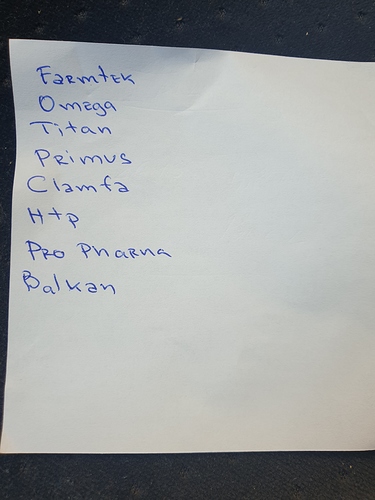 Farmtek
Omega
Titan
Primus
Clamfa
Htp
Pro Pharna
Balkan